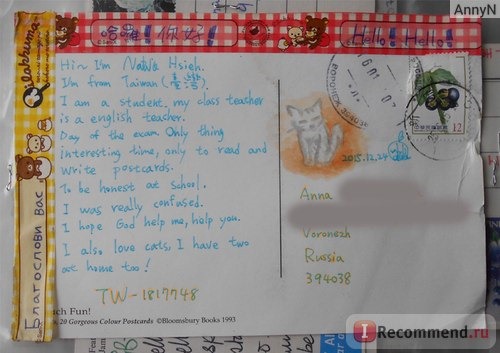 AnnyN
Rilakkuma
哈囉! 你好!
Hello! Hello!
Hi~ I'm NaiWa Hsieh.
I'm from Taiwan (臺灣).
I am a student, my class teacher
is a english teacher.
Day of the exam. Only thing
interesting time, only to read and
write postcards.
To be honest at school.
I was really confused.
I hope God help me, help you.
I also love cats, I have two
at home too!
TW-1817748
Благослови вас
ch Fun!
20 Gorgeous Colour Postcards ©Bloomsbury Books 1993
ВОРОНЕЖ 394038
中華民國郵票
12
2015.12.24
Anna
Voronezh
Russia
394038
I Recommend.ru